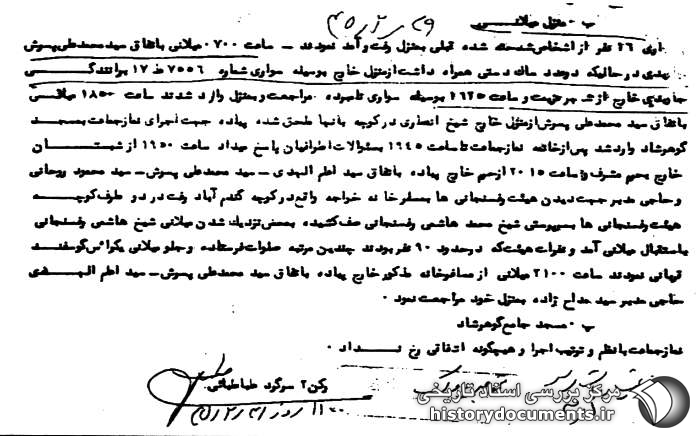 ب - منزل میلانی
۲۹ ر ۲ ر ۴۵
۲۶ نفر از اشخاص شناخته شده قبلی بمنزل رفت و آمد نمودند - ساعت ۰۷۰۰ میلانی باتفاق سید محمدعلی پسرش
در حالیکه دو عدد ساک دستی همراه داشت از منزل خارج بوسیله سواری شماره ۷۵۵۶ ط ۱۷ برانندگی
خارج از شهر عزیمت و ساعت ۱۶۲۵ بوسیله سواری نامبرده مراجعت و بمنزل وارد شدند ساعت ۱۸۵۰ میلانی
باتفاق سید محمدعلی پسرش از منزل خارج شیخ انصاری در کوچه بآنها ملحق شده پیاده جهت اجرای نماز جماعت بمسجد
گوهرشاد وارد شد پس از خاتمه نماز جماعت تا ساعت ۱۹۴۵ بسئوالات اطرافیان پاسخ میداد ساعت ۱۹۵۰ از شبستان
خارج بحرم مشرف و ساعت ۲۰۱۵ از حرم خارج پیاده باتفاق سید اعلم الهدی - سید محمدعلی پسرش - سید محمود روحانی
و حاجی مدبر جهت دیدن هیئت رفسنجانی ها بمسافرخانه خواجه واقع در کوچه گندم آباد رفت در دو طرف کوچه
هیئت رفسنجانی ها بسرپرستی شیخ محمد هاشمی رفسنجانی صف کشیده بمحض نزدیک شدن میلانی شیخ هاشمی رفسنجانی
باستقبال میلانی آمد و نفرات هیئت که در حدود ۹۰ نفر بودند چندین مرتبه صلوات فرستاده و جلو میلانی یکراس گوسفند
قربانی نمودند ساعت ۲۱۰۰ میلانی از مسافرخانه مذکور خارج پیاده باتفاق سید محمدعلی پسرش - سید اعلم الهدی
حاجی مدبر سید مداح زاده بمنزل خود مراجعت نمود .
ب - مسجد جامع گوهرشاد
نماز جماعت با نظم و ترتیب اجرا و هیچگونه اتفاقی رخ نداد .
رکن ۲ سرگرد طباطبائی
مرکز بررسی اسناد تاریخی
historydocuments.ir